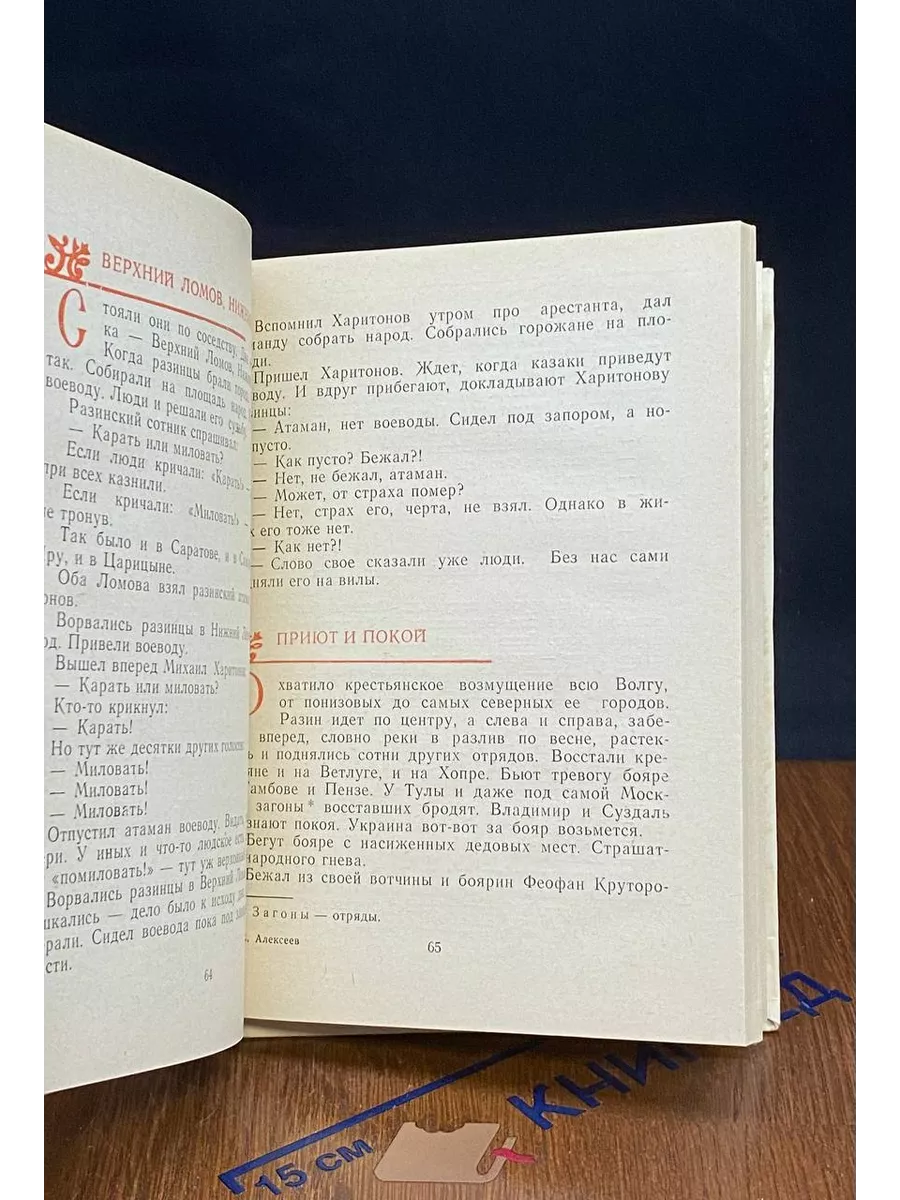 ВЕРХНИЙ ЛОМОВ,
Стояли они по соседству.
ка — Верхний Ломов,
Когда разинцы брали город,
так. Собирали на площадь народ,
воеводу. Люди и решали его судьбу.
Разинский сотник спрашивал:
— Карать или миловать?
Если люди кричали: «Карать!» —
при всех казнили.
Если кричали: «Миловать!» —
тронув.
Так было и в Саратове, и в
ру, и в Царицыне.
Оба Ломова взял разинский
онов.
Ворвались разинцы в Нижний
од. Привели воеводу.
Вышел вперед Михаил Харитонов:
— Карать или миловать?
Кто-то крикнул:
— Карать!
Но тут же десятки других голосов:
— Миловать!
— Миловать!
— Миловать!
Отпустил атаман воеводу.
ри. У иных и что-то людское есть
«помиловать!» — тут уж
Ворвались разинцы в Верхний
шкались — дело было к исходу
рали. Сидел воевода пока под
сти.
64
Вспомнил Харитонов утром про арестанта, дал
манду собрать народ. Собрались горожане на пло-
ди.
Пришел Харитонов. Ждет, когда казаки приведут
воду. И вдруг прибегают, докладывают Харитонову
зинцы:
— Атаман, нет воеводы. Сидел под запором, а но-
пусто.
— Как пусто? Бежал?!
— Нет, не бежал, атаман.
— Может, от страха помер?
— Нет, страх его, черта, не взял. Однако в жи-
х его тоже нет.
— Как нет?!
— Слово свое сказали уже люди. Без нас сами
дняли его на вилы.
ПРИЮТ И ПОКОЙ
Охватило крестьянское возмущение всю Волгу,
от понизовых до самых северных ее городов.
Разин идет по центру, а слева и справа, забе-
вперед, словно реки в разлив по весне, растек-
ь и поднялись сотни других отрядов. Восстали кре-
яне и на Ветлуге, и на Хопре. Бьют тревогу бояре
Тамбове и Пензе. У Тулы и даже под самой Моск-
загоны* восставших бродят. Владимир и Суздаль
знают покоя. Украина вот-вот за бояр возьмется.
Бегут бояре с насиженных дедовых мест. Страшат-
народного гнева.
Бежал из своей вотчины и боярин Феофан Круторо-
Загоны — отряды.
Алексеев
65
15 СМ